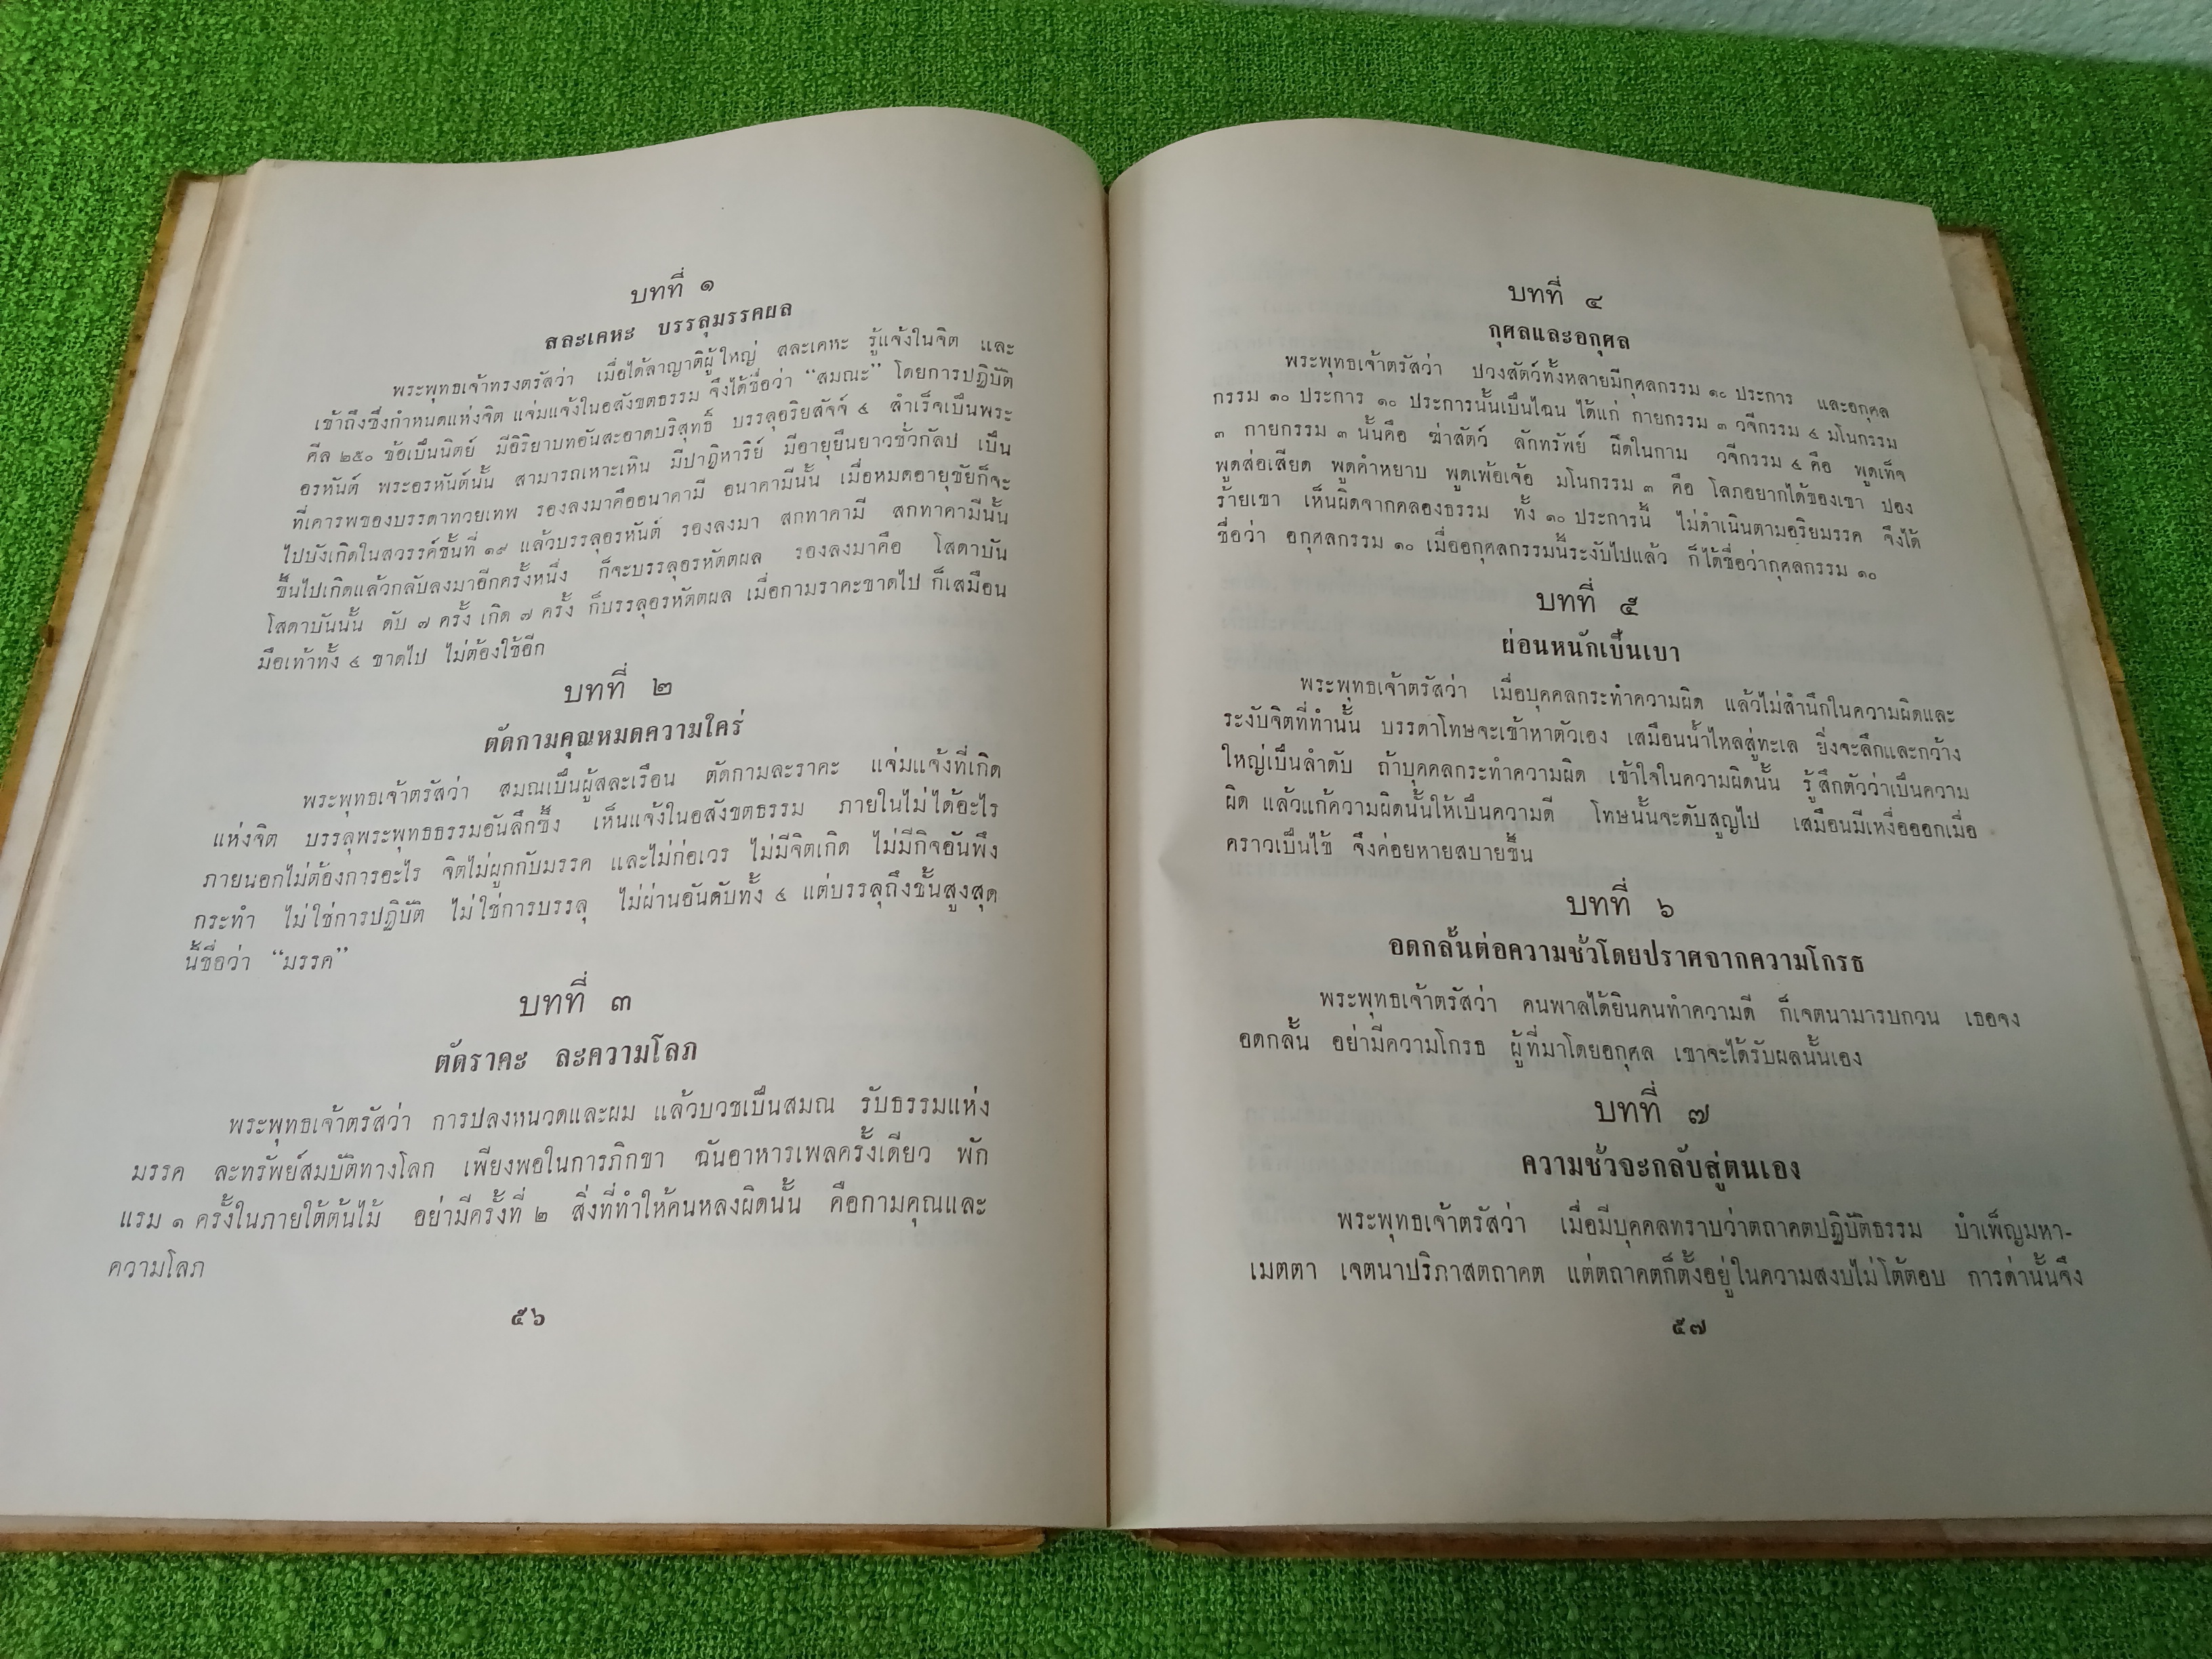 บทที่ ๑
สละเคหะ บรรลุมรรคผล
พระพุทธเจ้าทรงตรัสว่า เมื่อได้ลาญาติผู้ใหญ่ สละเคหะ รู้แจ้งในจิต และ
เข้าถึงซึ่งกำหนดแห่งจิต แจ่มแจ้งในอสังขตธรรม จึงได้ชื่อว่า “สมณะ” โดยการปฏิบัติ
ศีล ๒๕๐ ข้อเป็นนิตย์ มีอิริยาบทอันสะอาดบริสุทธิ์ บรรลุอริยสัจจ์ ๔ สำเร็จเป็นพระ
อรหันต์ พระอรหันต์นั้น สามารถเหาะเหิน มีปาฏิหาริย์ มีอายุยืนยาวชั่วกัลป เป็น
ที่เคารพของบรรดาทวยเทพ รองลงมาคืออนาคามี อนาคามีนั้น เมื่อหมดอายุขัยก็จะ
ไปบังเกิดในสวรรค์ชั้นที่ ๑๙ แล้วบรรลุอรหันต์ รองลงมา สกทาคามี สกทาคามีนั้น
ขึ้นไปเกิดแล้วกลับลงมาอีกครั้งหนึ่ง ก็จะบรรลุอรหัตตผล รองลงมาคือ โสดาบัน
โสดาบันนั้น ดับ ๗ ครั้ง เกิด ๗ ครั้ง ก็บรรลุอรหัตตผล เมื่อกามราคะขาดไป ก็เสมือน
มือเท้าทั้ง ๔ ขาดไป ไม่ต้องใช้อีก
บทที่ ๒
ตัดกามคุณหมดความใคร่
พระพุทธเจ้าตรัสว่า สมณเป็นผู้สละเรือน ตัดกามละราคะ แจ่มแจ้งที่เกิด
แห่งจิต บรรลุพระพุทธธรรมอันลึกซึ้ง เห็นแจ้งในอสังขตธรรม ภายในไม่ได้อะไร
ภายนอกไม่ต้องการอะไร จิตไม่ผูกกับมรรค และไม่ก่อเวร ไม่มีจิตเกิด ไม่มีกิจอันพึง
กระทำ ไม่ใช่การปฏิบัติ ไม่ใช่การบรรลุ ไม่ผ่านอันดับทั้ง ๔ แต่บรรลุถึงขั้นสูงสุด
นี้ชื่อว่า “มรรค”
บทที่ ๓
ตัดราคะ ละความโลภ
พระพุทธเจ้าตรัสว่า การปลงหนวดและผม แล้วบวชเป็นสมณ รับธรรมแห่ง
มรรค ละทรัพย์สมบัติทางโลก เพียงพอในการภิกขา ฉันอาหารเพลครั้งเดียว พัก
แรม ๑ ครั้งในภายใต้ต้นไม้ อย่ามีครั้งที่ ๒ สิ่งที่ทำให้คนหลงผิดนั้น คือกามคุณและ
ความโลภ
๕๖
บทที่ ๔
กุศลและอกุศล
พระพุทธเจ้าตรัสว่า ปวงสัตว์ทั้งหลายมีกุศลกรรม ๑๐ ประการ และอกุศล
กรรม ๑๐ ประการ ๑๐ ประการนั้นเป็นไฉน ได้แก่ กายกรรม ๓ วจีกรรม ๔ มโนกรรม
๓ กายกรรม ๓ นั้นคือ ฆ่าสัตว์ ลักทรัพย์ ผิดในกาม วจีกรรม ๔ คือ พูดเท็จ
พูดส่อเสียด พูดคำหยาบ พูดเพ้อเจ้อ มโนกรรม ๓ คือ โลภอยากได้ของเขา ปอง
ร้ายเขา เห็นผิดจากคลองธรรม ทั้ง ๑๐ ประการนี้ ไม่ดำเนินตามอริยมรรค จึงได้
ชื่อว่า อกุศลกรรม ๑๐ เมื่ออกุศลกรรมนี้ระงับไปแล้ว ก็ได้ชื่อว่ากุศลกรรม ๑๐
บทที่ ๕
ผ่อนหนักเป็นเบา
พระพุทธเจ้าตรัสว่า เมื่อบุคคลกระทำความผิด แล้วไม่สำนึกในความผิดและ
ระงับจิตที่ทำนั้น บรรดาโทษจะเข้าหาตัวเอง เสมือนน้ำไหลสู่ทะเล ยิ่งจะลึกและกว้าง
ใหญ่เป็นลำดับ ถ้าบุคคลกระทำความผิด เข้าใจในความผิดนั้น รู้สึกตัวว่าเป็นความ
ผิด แล้วแก้ความผิดนั้นให้เป็นความดี โทษนั้นจะดับสูญไป เสมือนมีเหงื่อออกเมื่อ
คราวเป็นไข้ จึงค่อยหายสบายขึ้น
บทที่ ๖
อดกลั้นต่อความชั่วโดยปราศจากความโกรธ
พระพุทธเจ้าตรัสว่า คนพาลได้ยินคนทำความดี ก็เจตนามารบกวน เธอจง
อดกลั้น อย่ามีความโกรธ ผู้ที่มาโดยอกุศล เขาจะได้รับผลนั้นเอง
บทที่ ๗
ความชั่วจะกลับสู่ตนเอง
พระพุทธเจ้าตรัสว่า เมื่อมีบุคคลทราบว่าตถาคตปฏิบัติธรรม บำเพ็ญมหา-
เมตตา เจตนาปริภาสตถาคต แต่ตถาคตก็ตั้งอยู่ในความสงบไม่โต้ตอบ การด่านั้นจึง
๕๗